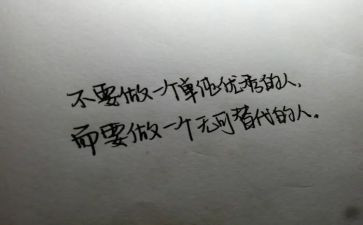 不要做一个单纯优秀的人,
而要做一个无可替代的人。